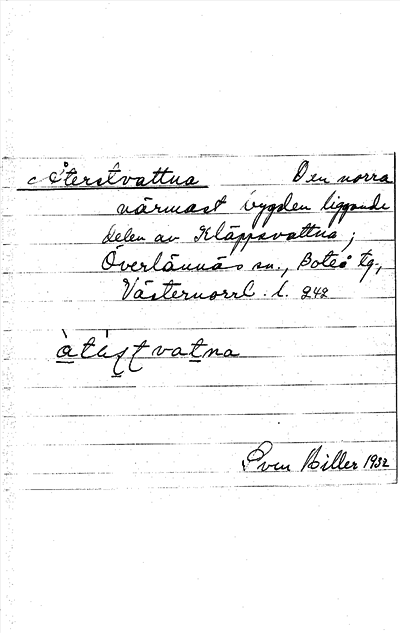 Återstvattna Den norra
närmast bygden liggande
delen av Kläppsvattna;
Överlännäs sn., Boteå tg.,
Västernorrl. l. 242
vatna
Sven Hiller 1932